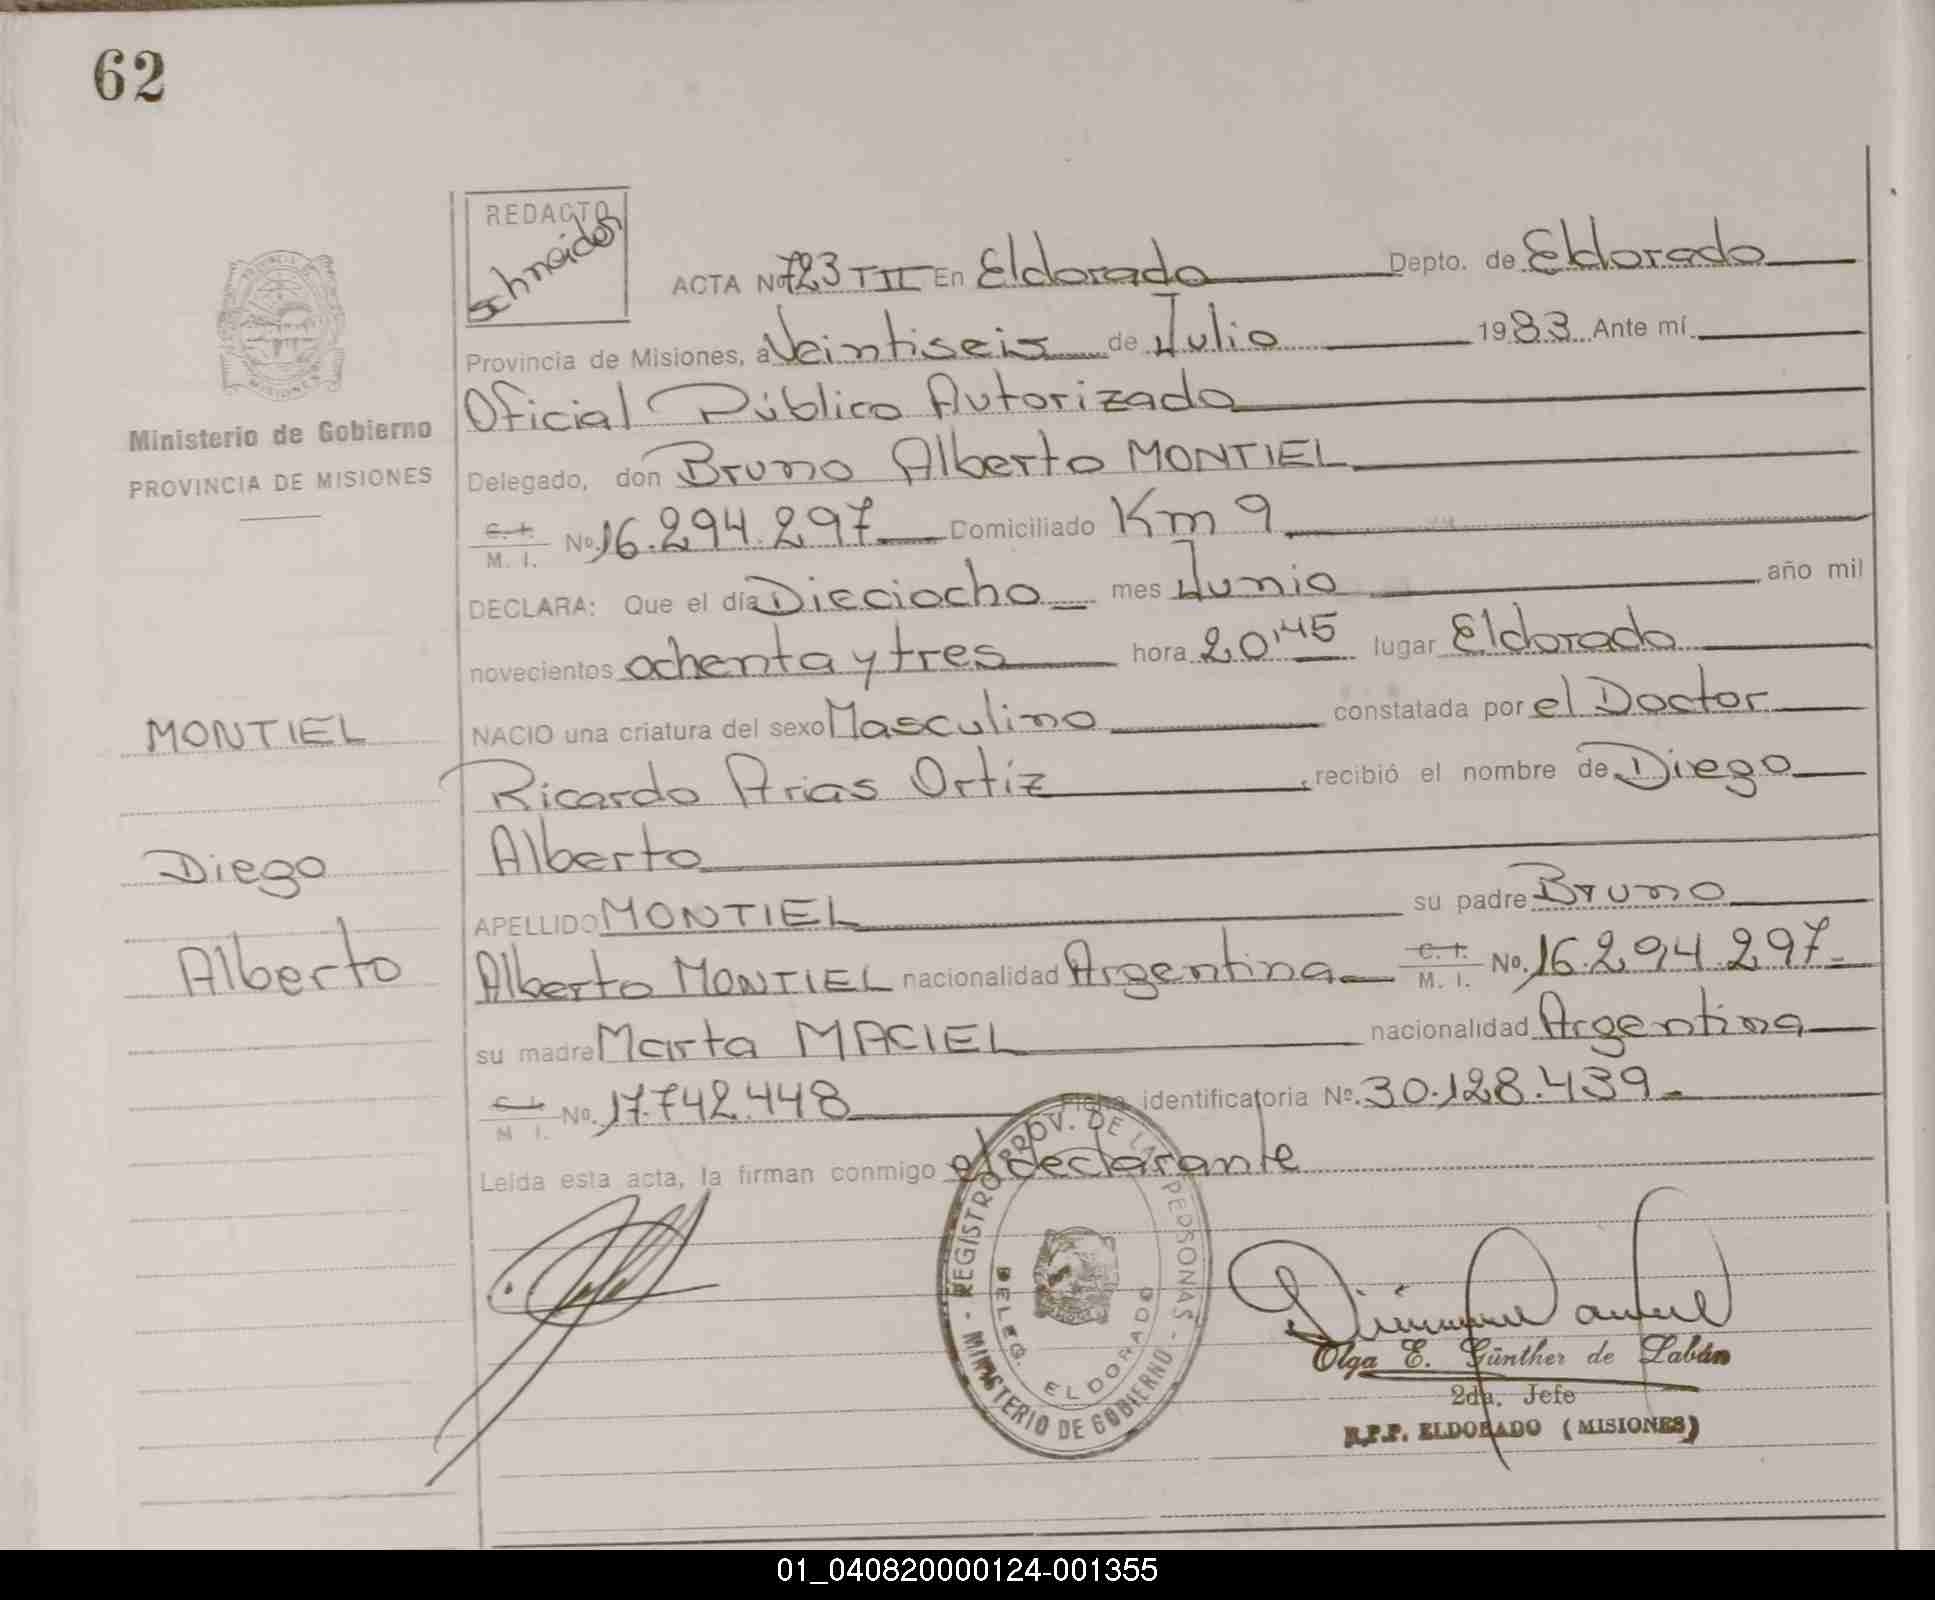 62
REDACTO
Schneider
ACTA No 723 T II En Eldorado Depto. de Eldorado
Provincia de Misiones, a Veintiseis de Julio 1983 Ante mí
Oficial Público Autorizado
Ministerio de Gobierno
PROVINCIA DE MISIONES
Delegado, don Bruno Alberto MONTIEL
C. I. M. I. No. 16.294.297 Domiciliado Km 9
DECLARA: Que el día Dieciocho mes Junio año mil
novecientos ochenta y tres hora 20'45 lugar Eldorado
NACIO una criatura del sexo Masculino constatada por el Doctor
Ricardo Arias Ortiz, recibió el nombre de Diego
Alberto
MONTIEL
Diego
Alberto
APELLIDO MONTIEL su padre Bruno
Alberto MONTIEL nacionalidad Argentina C. I. M. I. No. 16.294.297
su madre Marta MACIEL nacionalidad Argentina
C. I. M. I. No. 17.742.448 Ficha identificatoria Nº. 30.128.439
Leída esta acta, la firman conmigo el declarante
REGISTRO PROV. DE LAS PERSONAS - MINISTERIO DE GOBIERNO -
DELEG. ELDORADO
Olga E. Günther de Labán
2da. Jefe
R.P.P. ELDORADO (MISIONES)
01_040820000124-001355